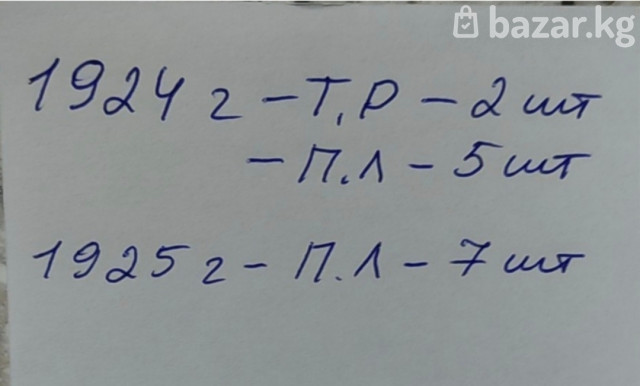 bazar.kg
1924 г - Т.Р - 2 шт
- П.Л - 5 шт
1925 г - П.Л - 7 шт